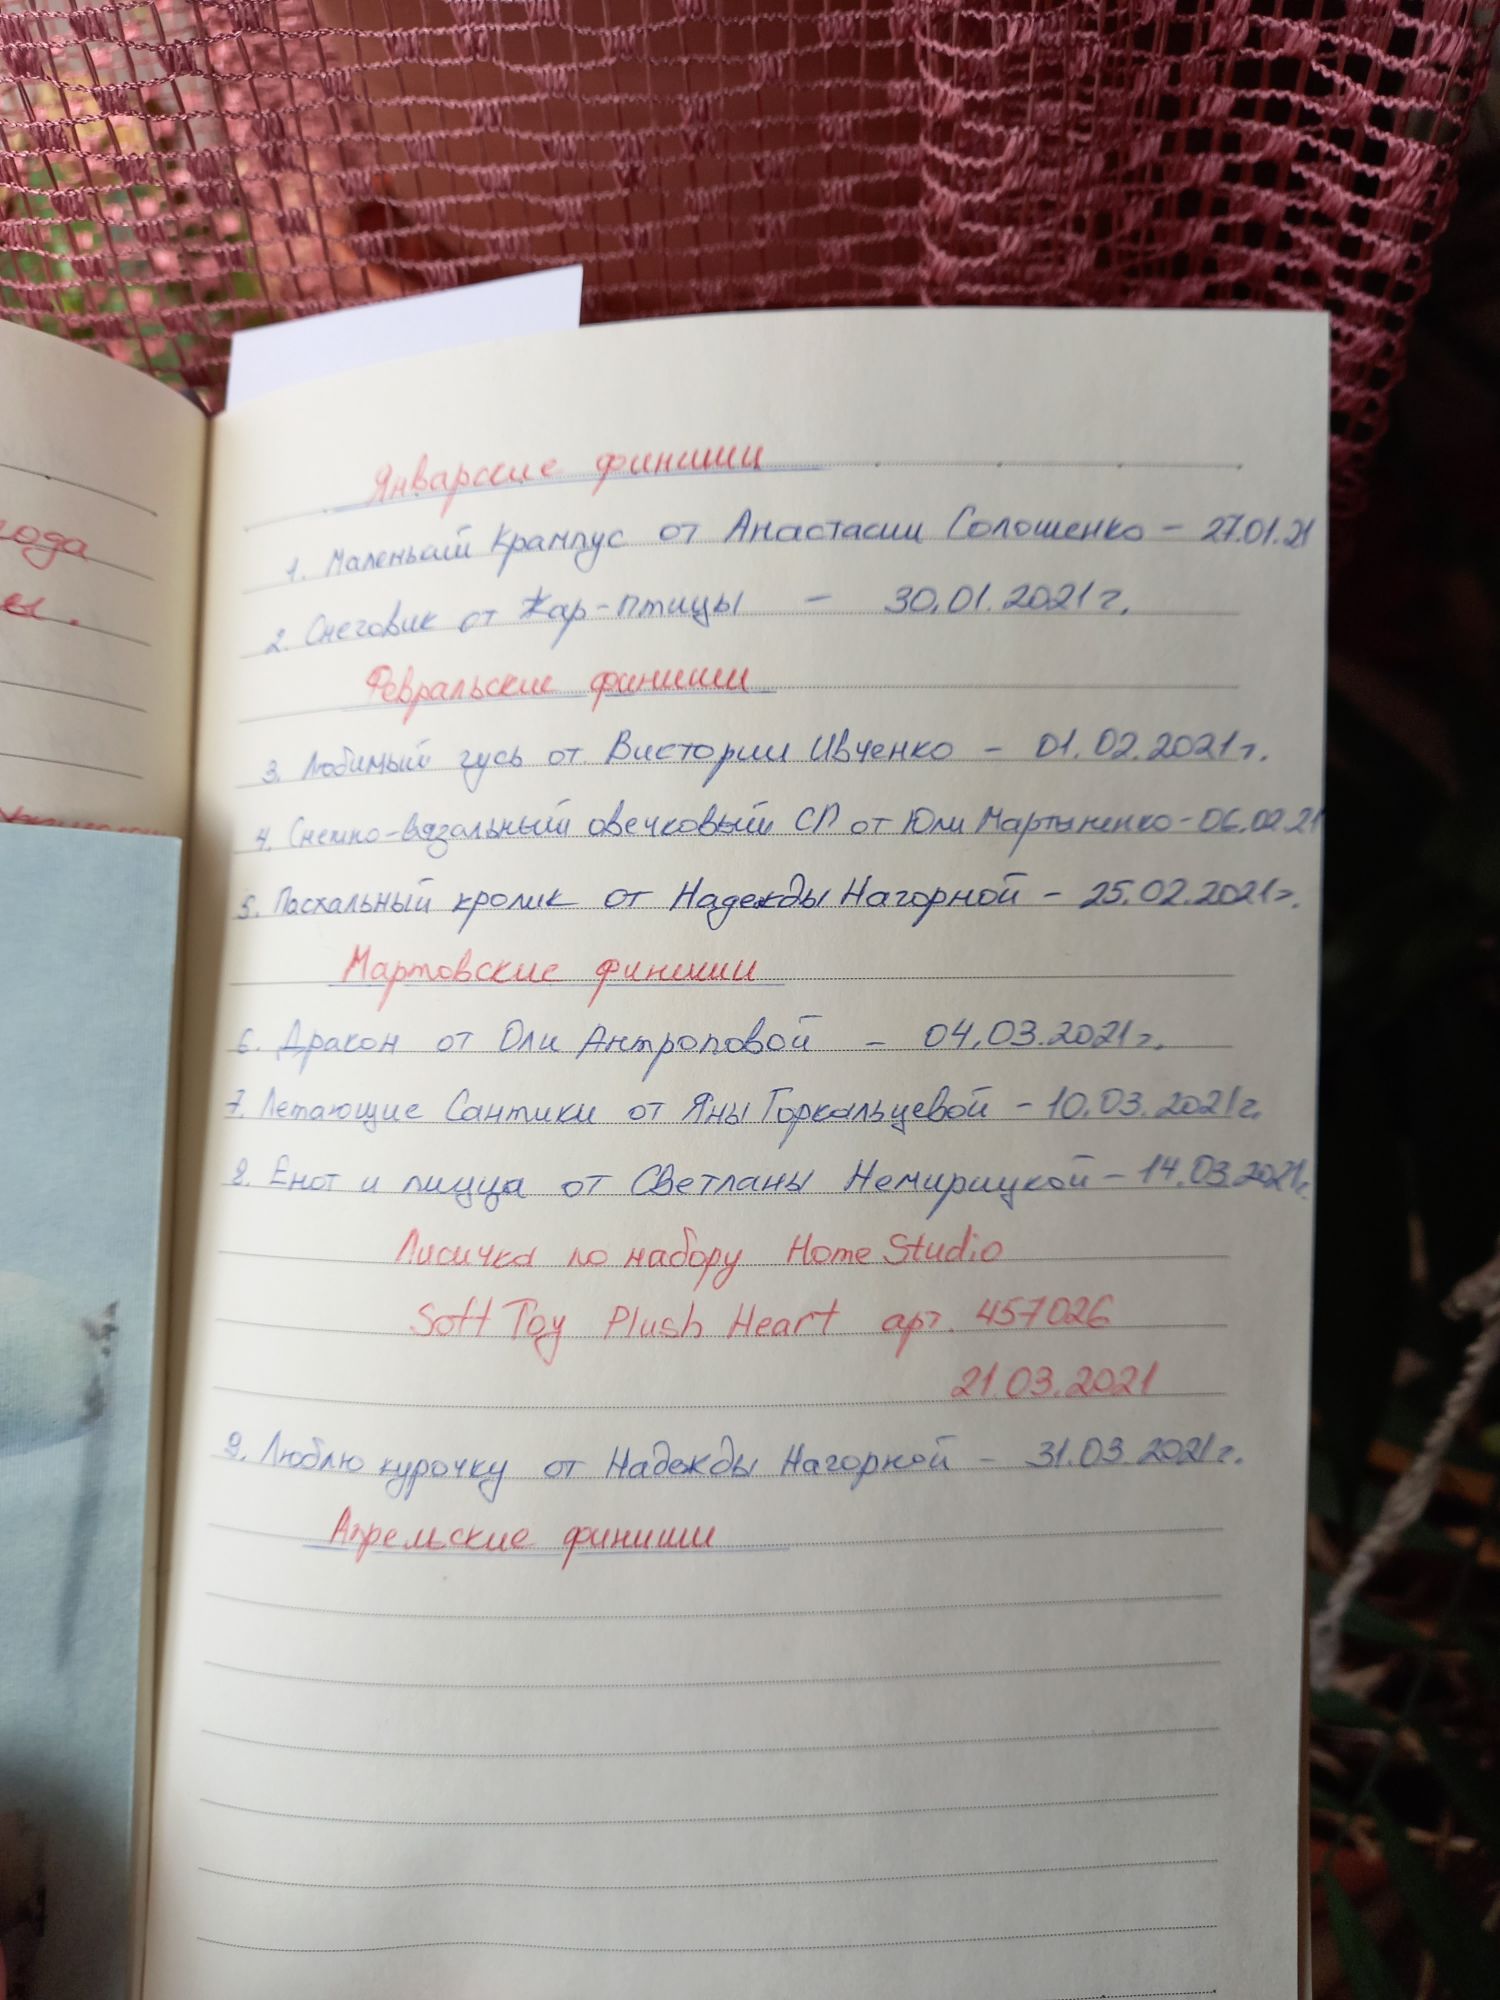 года
ы.
Январские финиши
1. Маленький Крампус от Анастасии Солошенко - 27.01.21
2. Снеговик от Жар-птицы - 30.01.2021г.
Февральские финиши
3. Любимый гусь от Виктории Ивченко - 01.02.2021г.
4. Снежно-вязальный овечковый СП от Юли Мартыненко - 06.02.21
5. Пасхальный кролик от Надежды Нагорной - 25.02.2021г.
Мартовские финиши
6. Дракон от Оли Антроповой - 04.03.2021г.
7. Летающие Сантики от Яны Горкальцевой - 10.03.2021г.
8. Енот и пицца от Светланы Немирицкой - 14.03.2021г.
Лисичка по набору Home Studio
Soft Toy Plush Heart арт. 457026
21.03.2021
9. Люблю курочку от Надежды Нагорной - 31.03.2021г.
Апрельские финиши